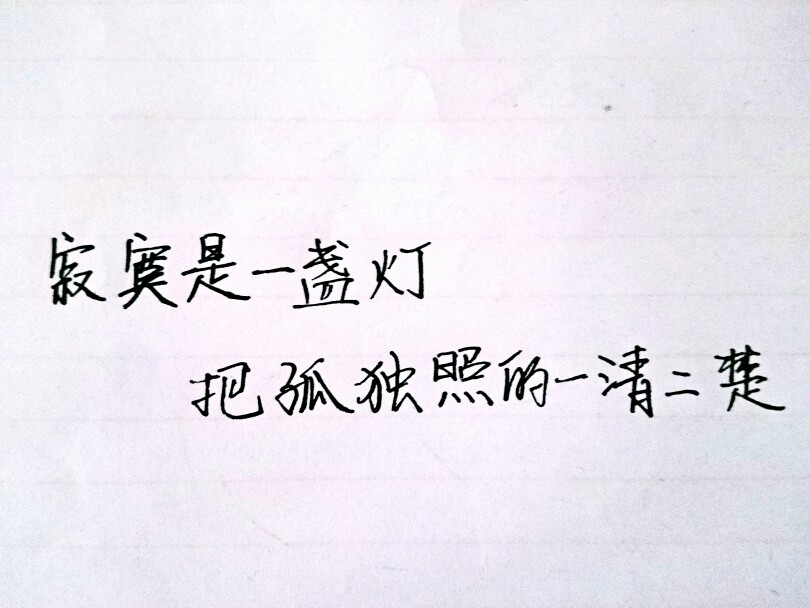 寂寞是一盏灯
把孤独照的一清二楚